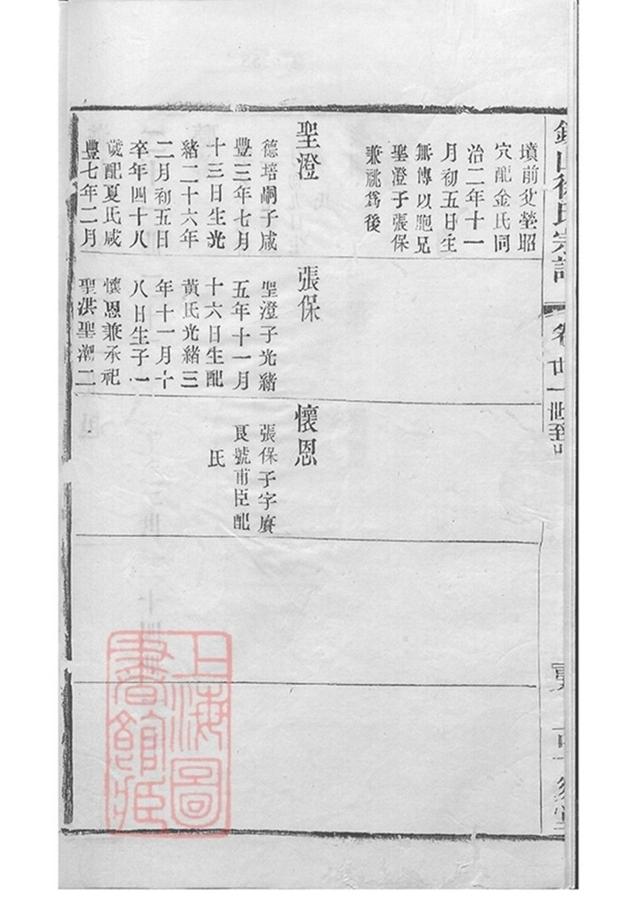 墳前父塋昭
穴配金氏同
治二年十一
月初五日生
無傳以胞兄
聖澄子張保
兼祧爲後
聖澄
德培嗣子咸
豐三年七月
十三日生光
緒二十六年
二月初五日
卒年四十八
歲配夏氏咸
豐七年二月
張保
聖澄子光緒
五年十一月
十六日生配
黃氏光緒三
年十一月十
八日生子一
懷恩兼承祀
聖洪聖潮二
懷恩
張保子字賡
良號甫臣配
氏
徐氏宗譜
卷廿一
上海圖
書館藏